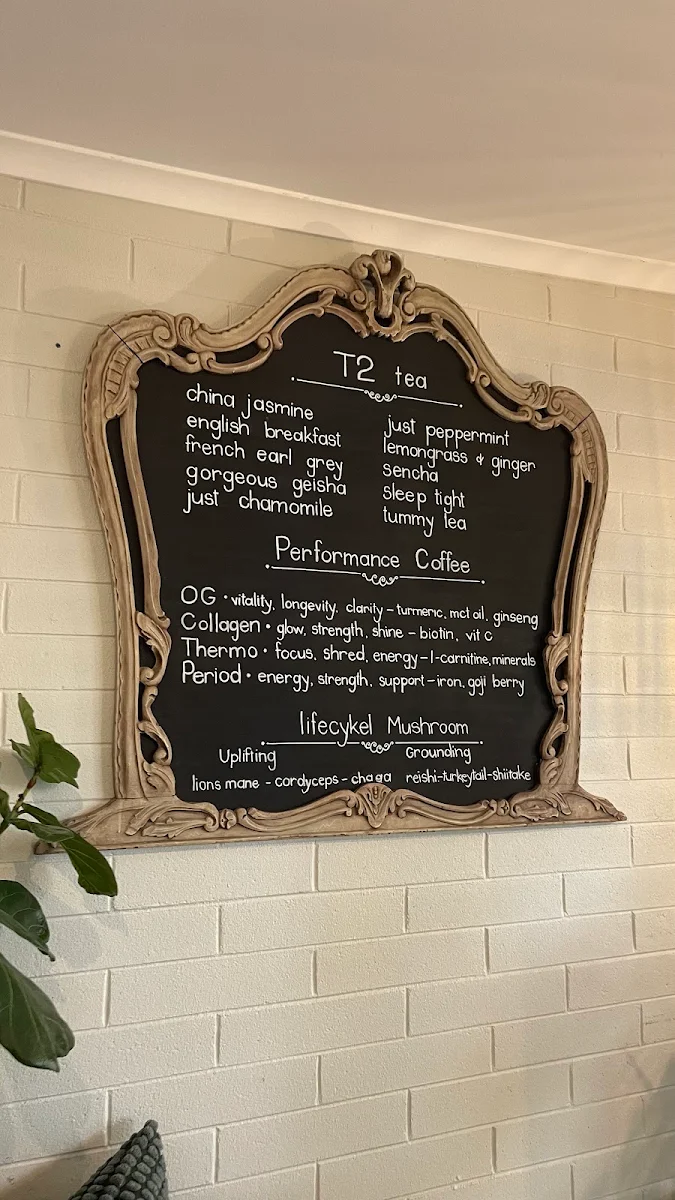 T2 tea
china jasmine
english breakfast
french earl grey
gorgeous geisha
just chamomile
just peppermint
lemongrass & ginger
sencha
sleep tight
tummy tea
Performance Coffee
OG • vitality, longevity, clarity - turmeric, mct oil, ginseng
Collagen • glow, strength, shine - biotin, vit c
Thermo • focus, shred, energy - l-carnitine, minerals
Period • energy, strength, support - iron, goji berry
lifecykel Mushroom
Uplifting
lions mane - cordyceps - chaga
Grounding
reishi-turkeytail-shiitake